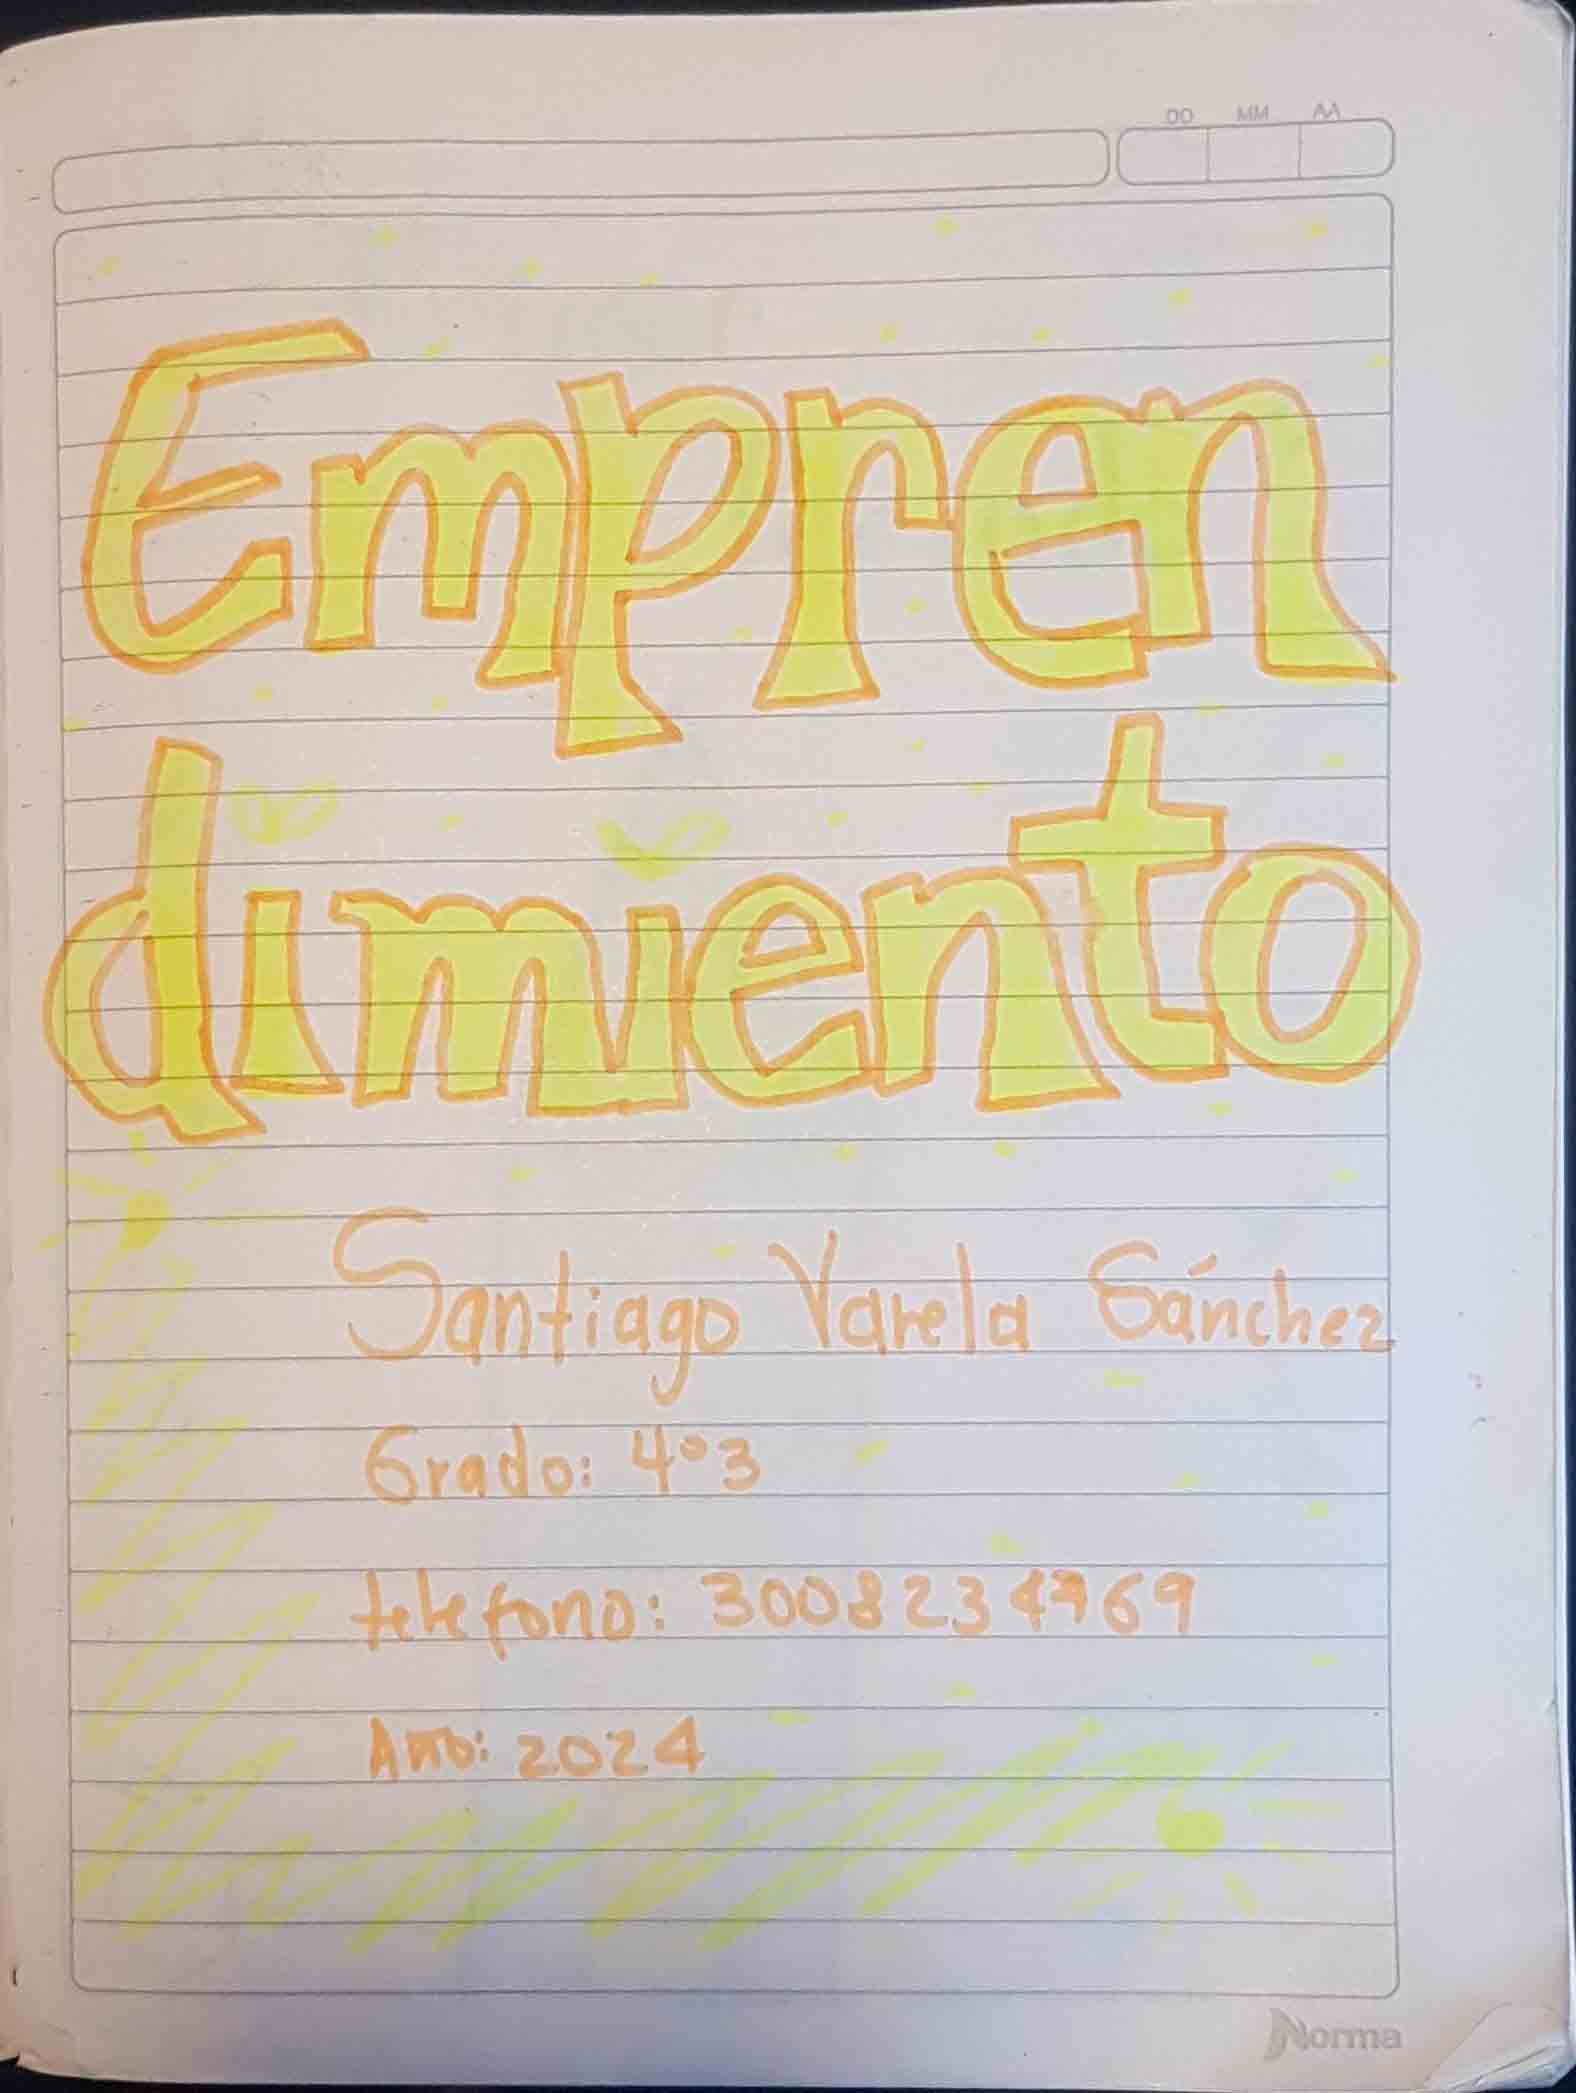 DD MM AA
Empren
dimiento
Santiago Varela Sánchez
Grado: 4°3
telefono: 3008234769
Año: 2024
Norma